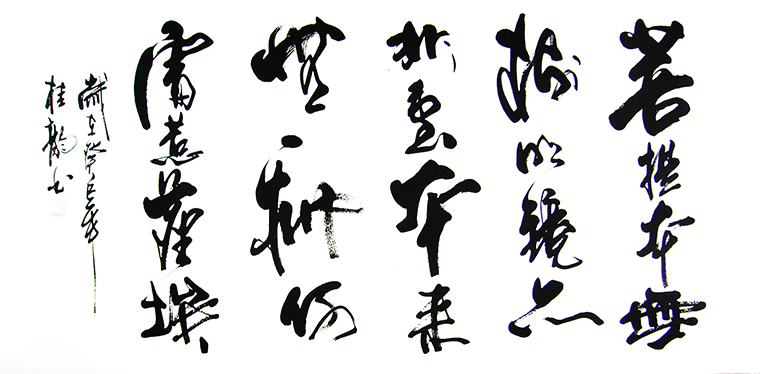 菩提本無
樹明鏡亦
非臺本来
無一物何
處惹塵埃
歲在癸巳年
桂书